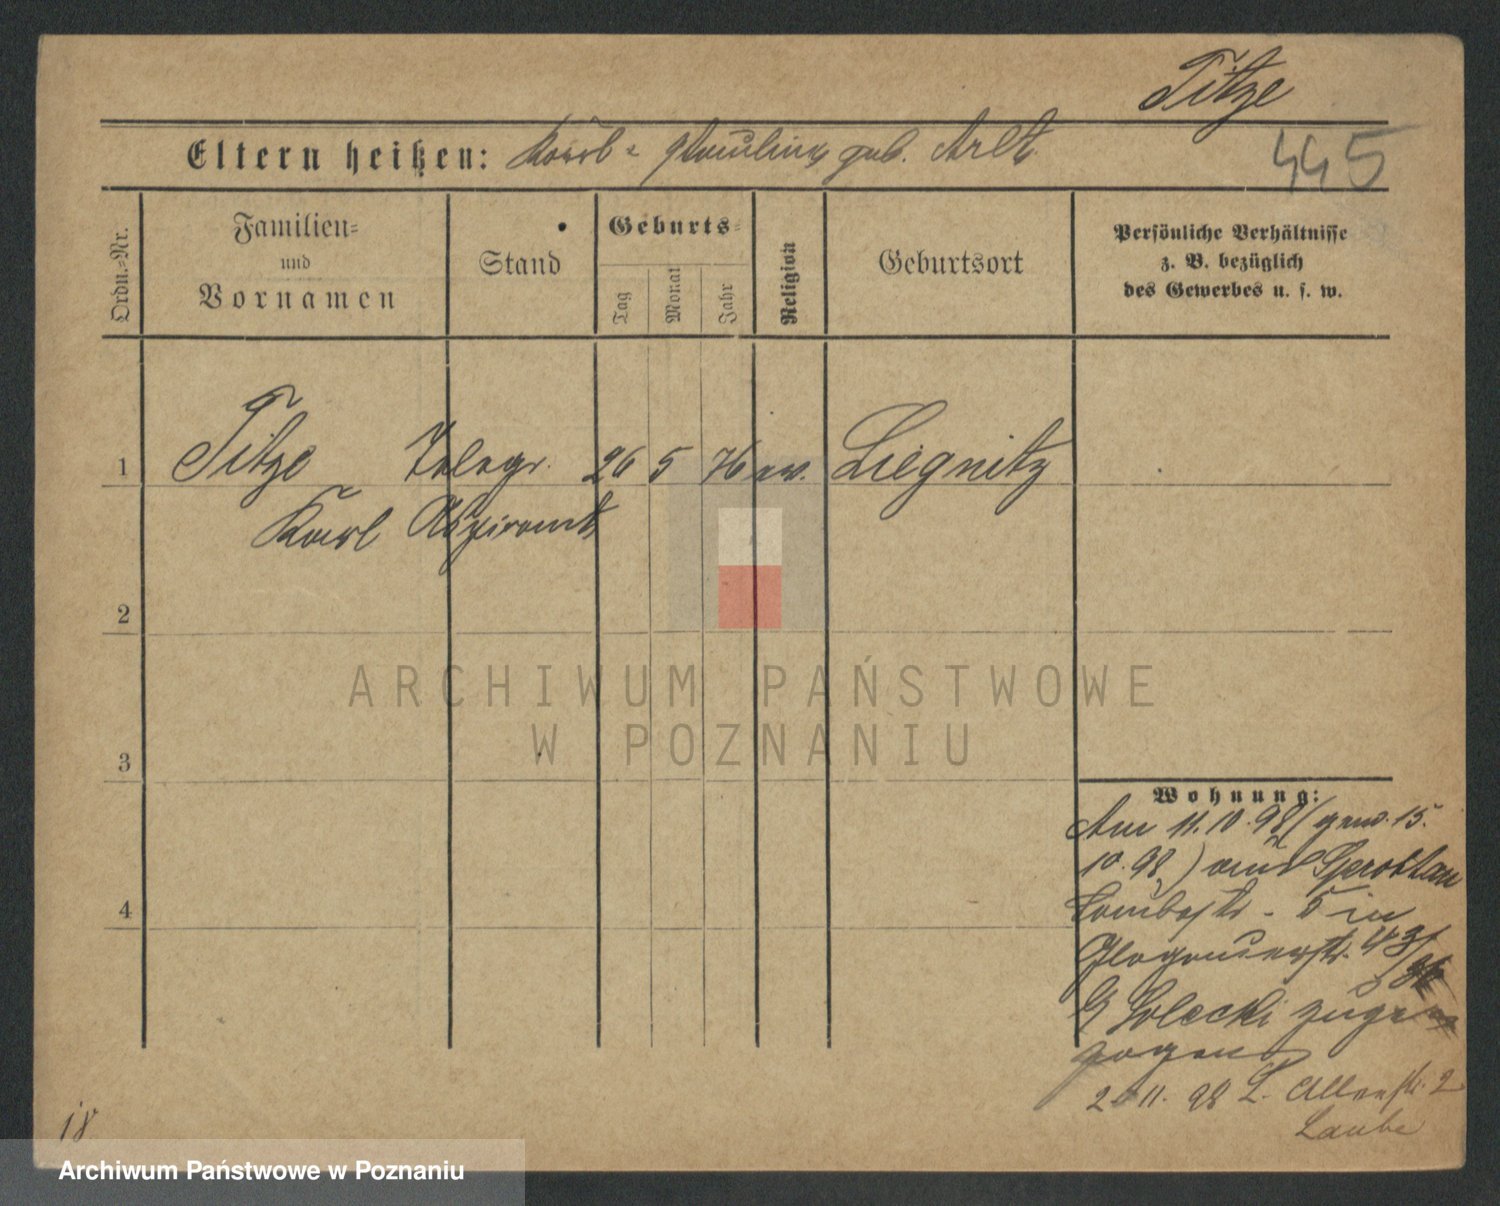 Titze
Eltern heißen: Karl u. Pauline geb. Arlt
445
Ordn.-Nr.
Familien-
und
Vornamen
Stand
Geburts-
Tag
Monat
Jahr
Religion
Geburtsort
Persönliche Verhältnisse
z. B. bezüglich
des Gewerbes u. s. w.
1 Titze Telegr. 26 5 76 ev. Liegnitz
Karl Aspirant
2
3
4
ARCHIWUM PAŃSTWOWE
W POZNANIU
Wohnung:
Am 11.10.98 (gem. 15.
10.98.) aus Sprottau
5 in
Glogauerstr. 43/
Solecki zuge
zogen
2 11. 98 L. 2
Laube
18
Archiwum Państwowe w Poznaniu